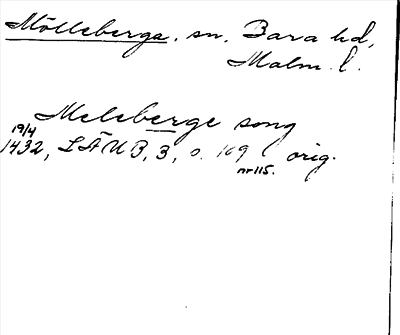 Mölleberga. sn. Bara hd,
Malm. l.
Meleberge song
19/4
1432, LÄUB, 3, s. 169 orig.
nr 115.